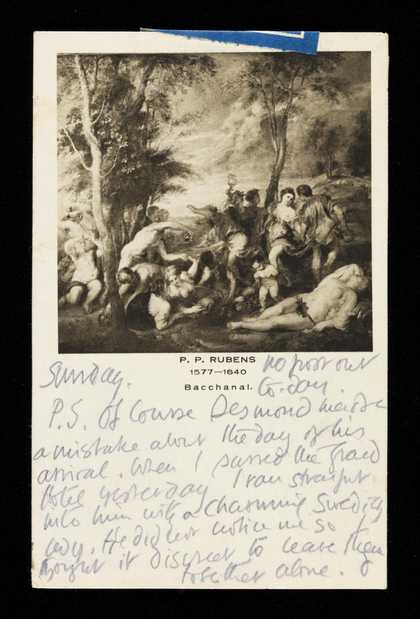 P. P. RUBENS
1577—1640
Bacchanal.
Sunday.
no post out
to-day.
P.S. Of course Desmond made
a mistake about the day of his
arrival. When I passed the Grand
Hotel yesterday I ran straight
into him with a charming Swedish
lady. He did not notice me so I
thought it discreet to leave them
together alone.